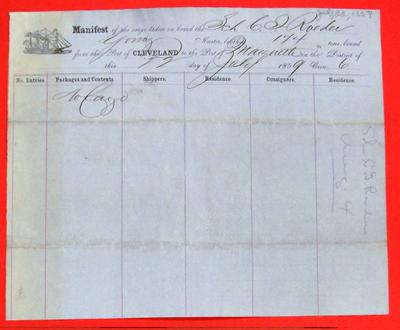 July 22, 1859
Manifest of the cargo taken on board the Sch C. G. Roeder
Master, burthen 174 tons, bound
from the Port of CLEVELAND to the Port of in the District of
this 22 day of July 1859 Crew 6
No. Entries Packages and Contents Shippers. Residence. Consignees. Residence.
No Cargo